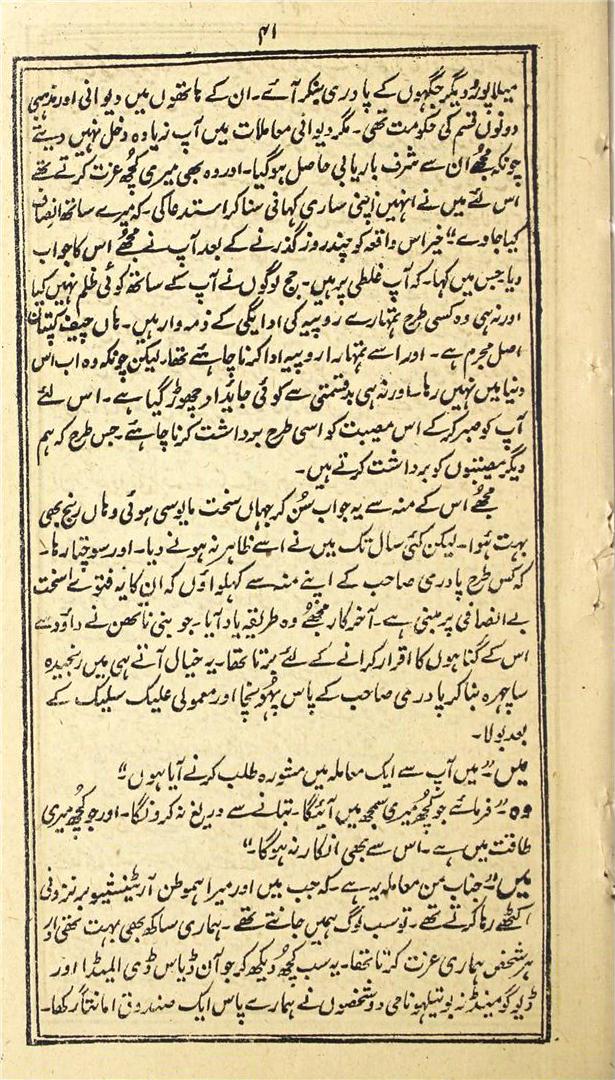 ۴۱
میلاپور و دیگر جگہوں کے پادری بنکر آئے۔ ان کے ہاتھوں میں دیوانی اور مذہبی
دونوں قسم کی حکومت تھی۔ مگر دیوانی معاملات میں آپ زیادہ دخل نہیں دیتے
چونکہ مجھے ان سے شرف باریابی حاصل ہوگیا۔ اور وہ بھی میری کچھ عزت کرتے تھے
اس لئے میں نے انہیں اپنی ساری کہانی سنا کر استدعا کی۔ کہ میرے ساتھ انصاف
کیا جاوے“ خیر اس واقعہ کو چند روز گذرنے کے بعد آپ نے مجھے اس کا جواب
دیا جس میں کہا۔ کہ آپ غلطی پر ہیں۔ جج لوگوں نے آپ کے ساتھ کوئی ظلم نہیں کیا
اور نہ ہی وہ کسی طرح تمہارے روپیہ کی ادائیگی کے ذمہ وار ہیں۔ ہاں چیف کپتان
اصل مجرم ہے۔ اور اسے تمہارا روپیہ ادا کرنا چاہئے تھا۔ لیکن چونکہ وہ اب اس
دنیا میں نہیں رہا۔ اور نہ ہی بدقسمتی سے کوئی جایداد چھوڑ گیا ہے۔ اس لئے
آپ کو صبر کر کے اس مصیبت کو اسی طرح برداشت کرنا چاہئے۔ جس طرح کہ ہم
دیگر مصیبتوں کو برداشت کرتے ہیں۔
مجھے اس کے منہ سے یہ جواب سن کر جہاں سخت مایوسی ہوئی وہاں رنج بھی
بہت ہوا۔ لیکن کئی سال تک میں نے اسے ظاہر نہ ہونے دیا۔ اور سوچتا رہا۔
کہ کس طرح پادری صاحب کے اپنے منہ سے کہلواؤں کہ ان کا یہ فتوےٰ سخت
بے انصافی پر مبنی ہے۔ آخر کار مجھے وہ طریقہ یاد آیا۔ جو نبی ناتھن نے داؤد سے
اس کے گناہوں کا اقرار کرانے کے لئے برتا تھا۔ یہ خیال آتے ہی میں رنجیدہ
سا چہرہ بنا کر پادری صاحب کے پاس پہونچا اور معمولی علیک سلیک کے
بعد بولا۔
میں۔ ”میں آپ سے ایک معاملہ میں مشورہ طلب کرنے آیا ہوں“
وہ۔ ”فرمائے جو کچھ میری سمجھ میں آئیگا۔ بتانے سے دریغ نہ کرونگا۔ اور جو کچھ میری
طاقت میں ہے۔ اس سے بھی انکار نہ ہوگا۔“
میں۔ ”جناب من معاملہ یہ ہے۔ کہ جب میں اور میرا ہموطن
اکٹھے رہا کرتے تھے۔ تو سب لوگ ہمیں جانتے تھے۔ ہماری ساکھ بھی بہت تھی اور
ہر شخص ہماری عزت کرتا تھا۔ یہ سب کچھ دیکھ کر جوآن ڈیاس ڈی المیڈا اور
نامی دو شخصوں نے ہمارے پاس ایک صندوق امانتاً رکھا۔